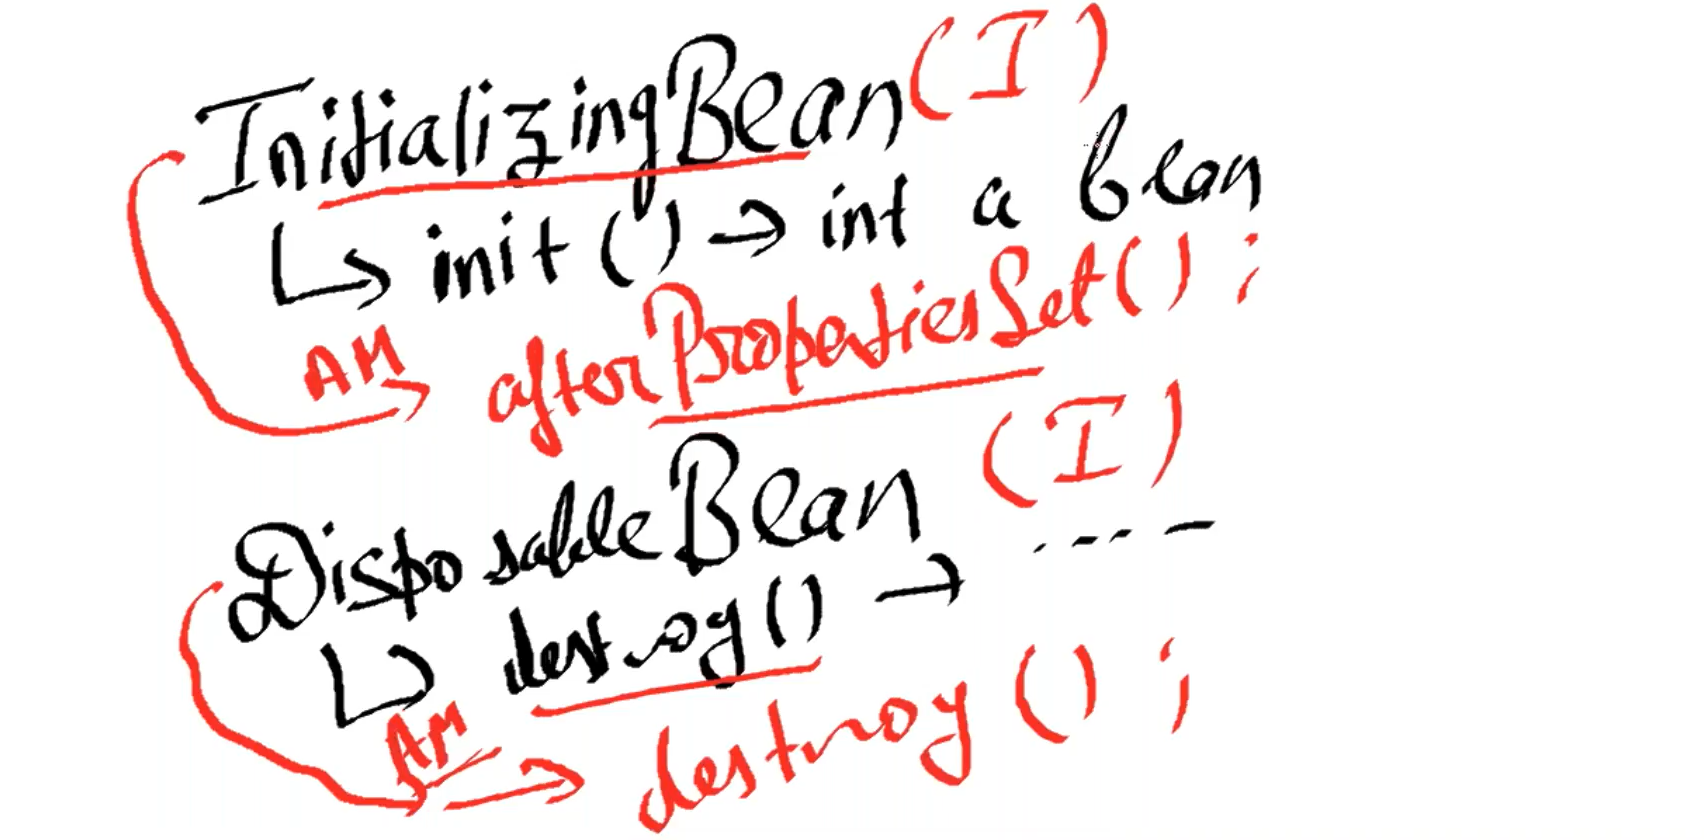 InitializingBean (I)
↳ init () → int a bean
AM → afterPropertiesSet() ;
DisposableBean (I)
↳ destroy() → ----
AM → destroy () ;